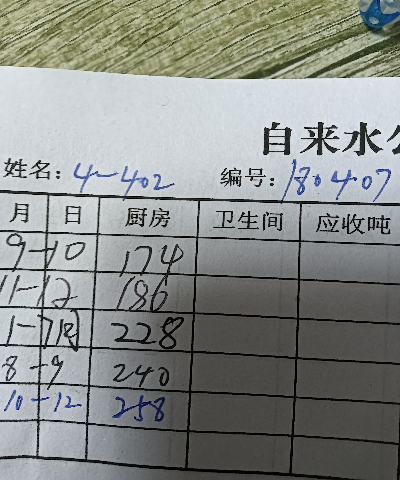 自来水公
姓名: 4-402 编号: 180407
月 日 厨房 卫生间 应收吨
9-10 174
11-12 186
228
8-9 240
10-12 258